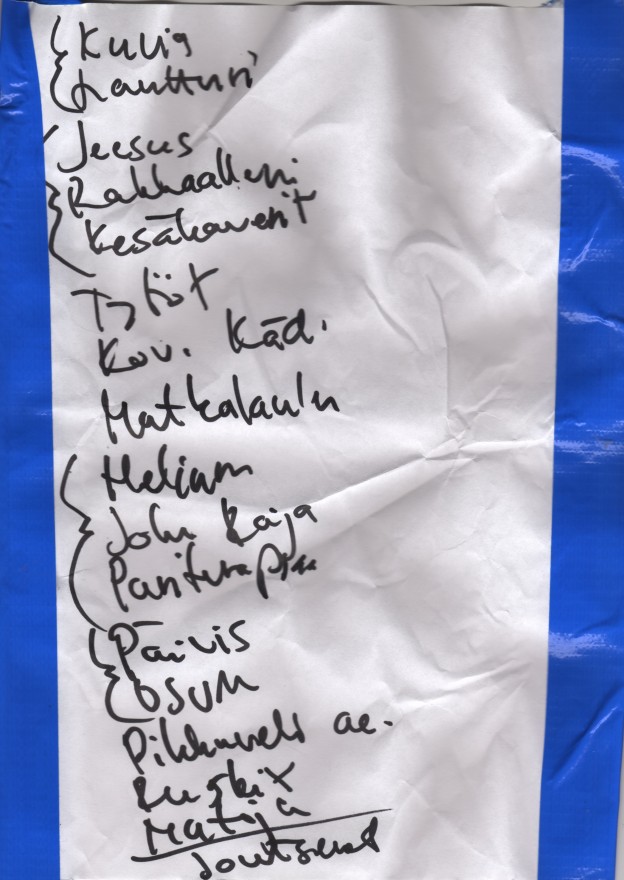 Kuvia
Lautturi
Jeesus
Rakkaalleni
Kesäkaverit
Tytöt
Kov. Käd.
Matkalaulu
Helium
John Kaija
Pariterapia
Päivis
OSUM
Pikkuveli ac.
Ruskix
Matija
Joutsenet